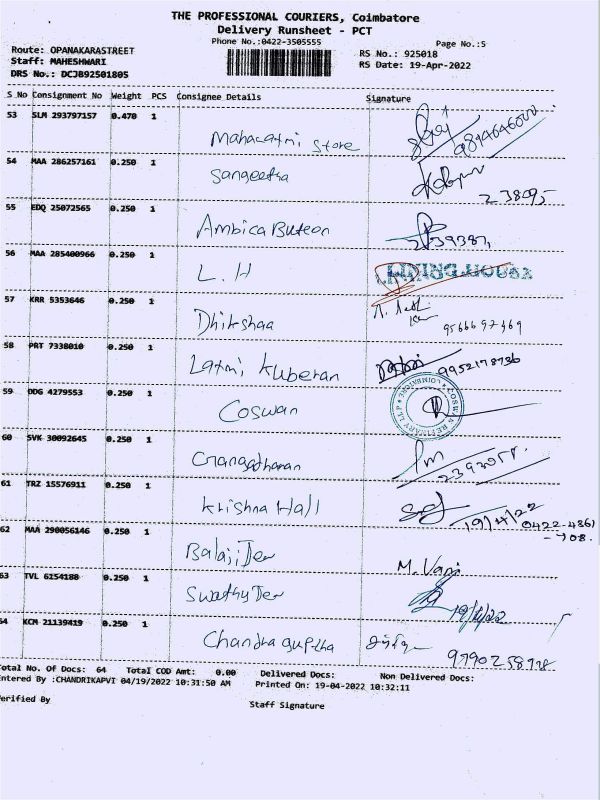 THE PROFESSIONAL COURIERS, Coimbatore
Delivery Runsheet - PCT
Phone No.:0422-3505555 Page No.:5
Route: OPANAKARASTREET RS No.: 925018
Staff: MAHESHWARI RS Date: 19-Apr-2022
DRS No.: DCJB92501805
S No Consignment No Weight PCS Consignee Details Signature
53 SLM 293797157 0.470 1
Mahalatmi Store
54 MAA 286257161 0.250 1
Sangeetha
55 EDQ 25072565 0.250 1
Ambica Buteon
56 MAA 285400966 0.250 1
L. H
57 KRR 5353646 0.250 1
Dhikshaa
58 PRT 7338010 0.250 1
Laxmi Kuberan 9952178736
59 DDG 4279553 0.250 1
Coswan COSWAN REFINARY LLP COIMBATORE
60 SVK 30092645 0.250 1
Gangatharan
61 TRZ 15576911 0.250 1
Krishna Hall 19/4/22 0422-4861
-708.
62 MAA 290056146 0.250 1
Balaji Jer M. Vani
63 TVL 6254188 0.250 1
Swathy Jer 19/4/22
64 KCM 21139419 0.250 1
Chandra guptha
Total No. Of Docs: 64 Total COD Amt: 0.00 Delivered Docs: Non Delivered Docs:
Entered By :CHANDRIKAPVI 04/19/2022 10:31:50 AM Printed On: 19-04-2022 10:32:11
Verified By Staff Signature